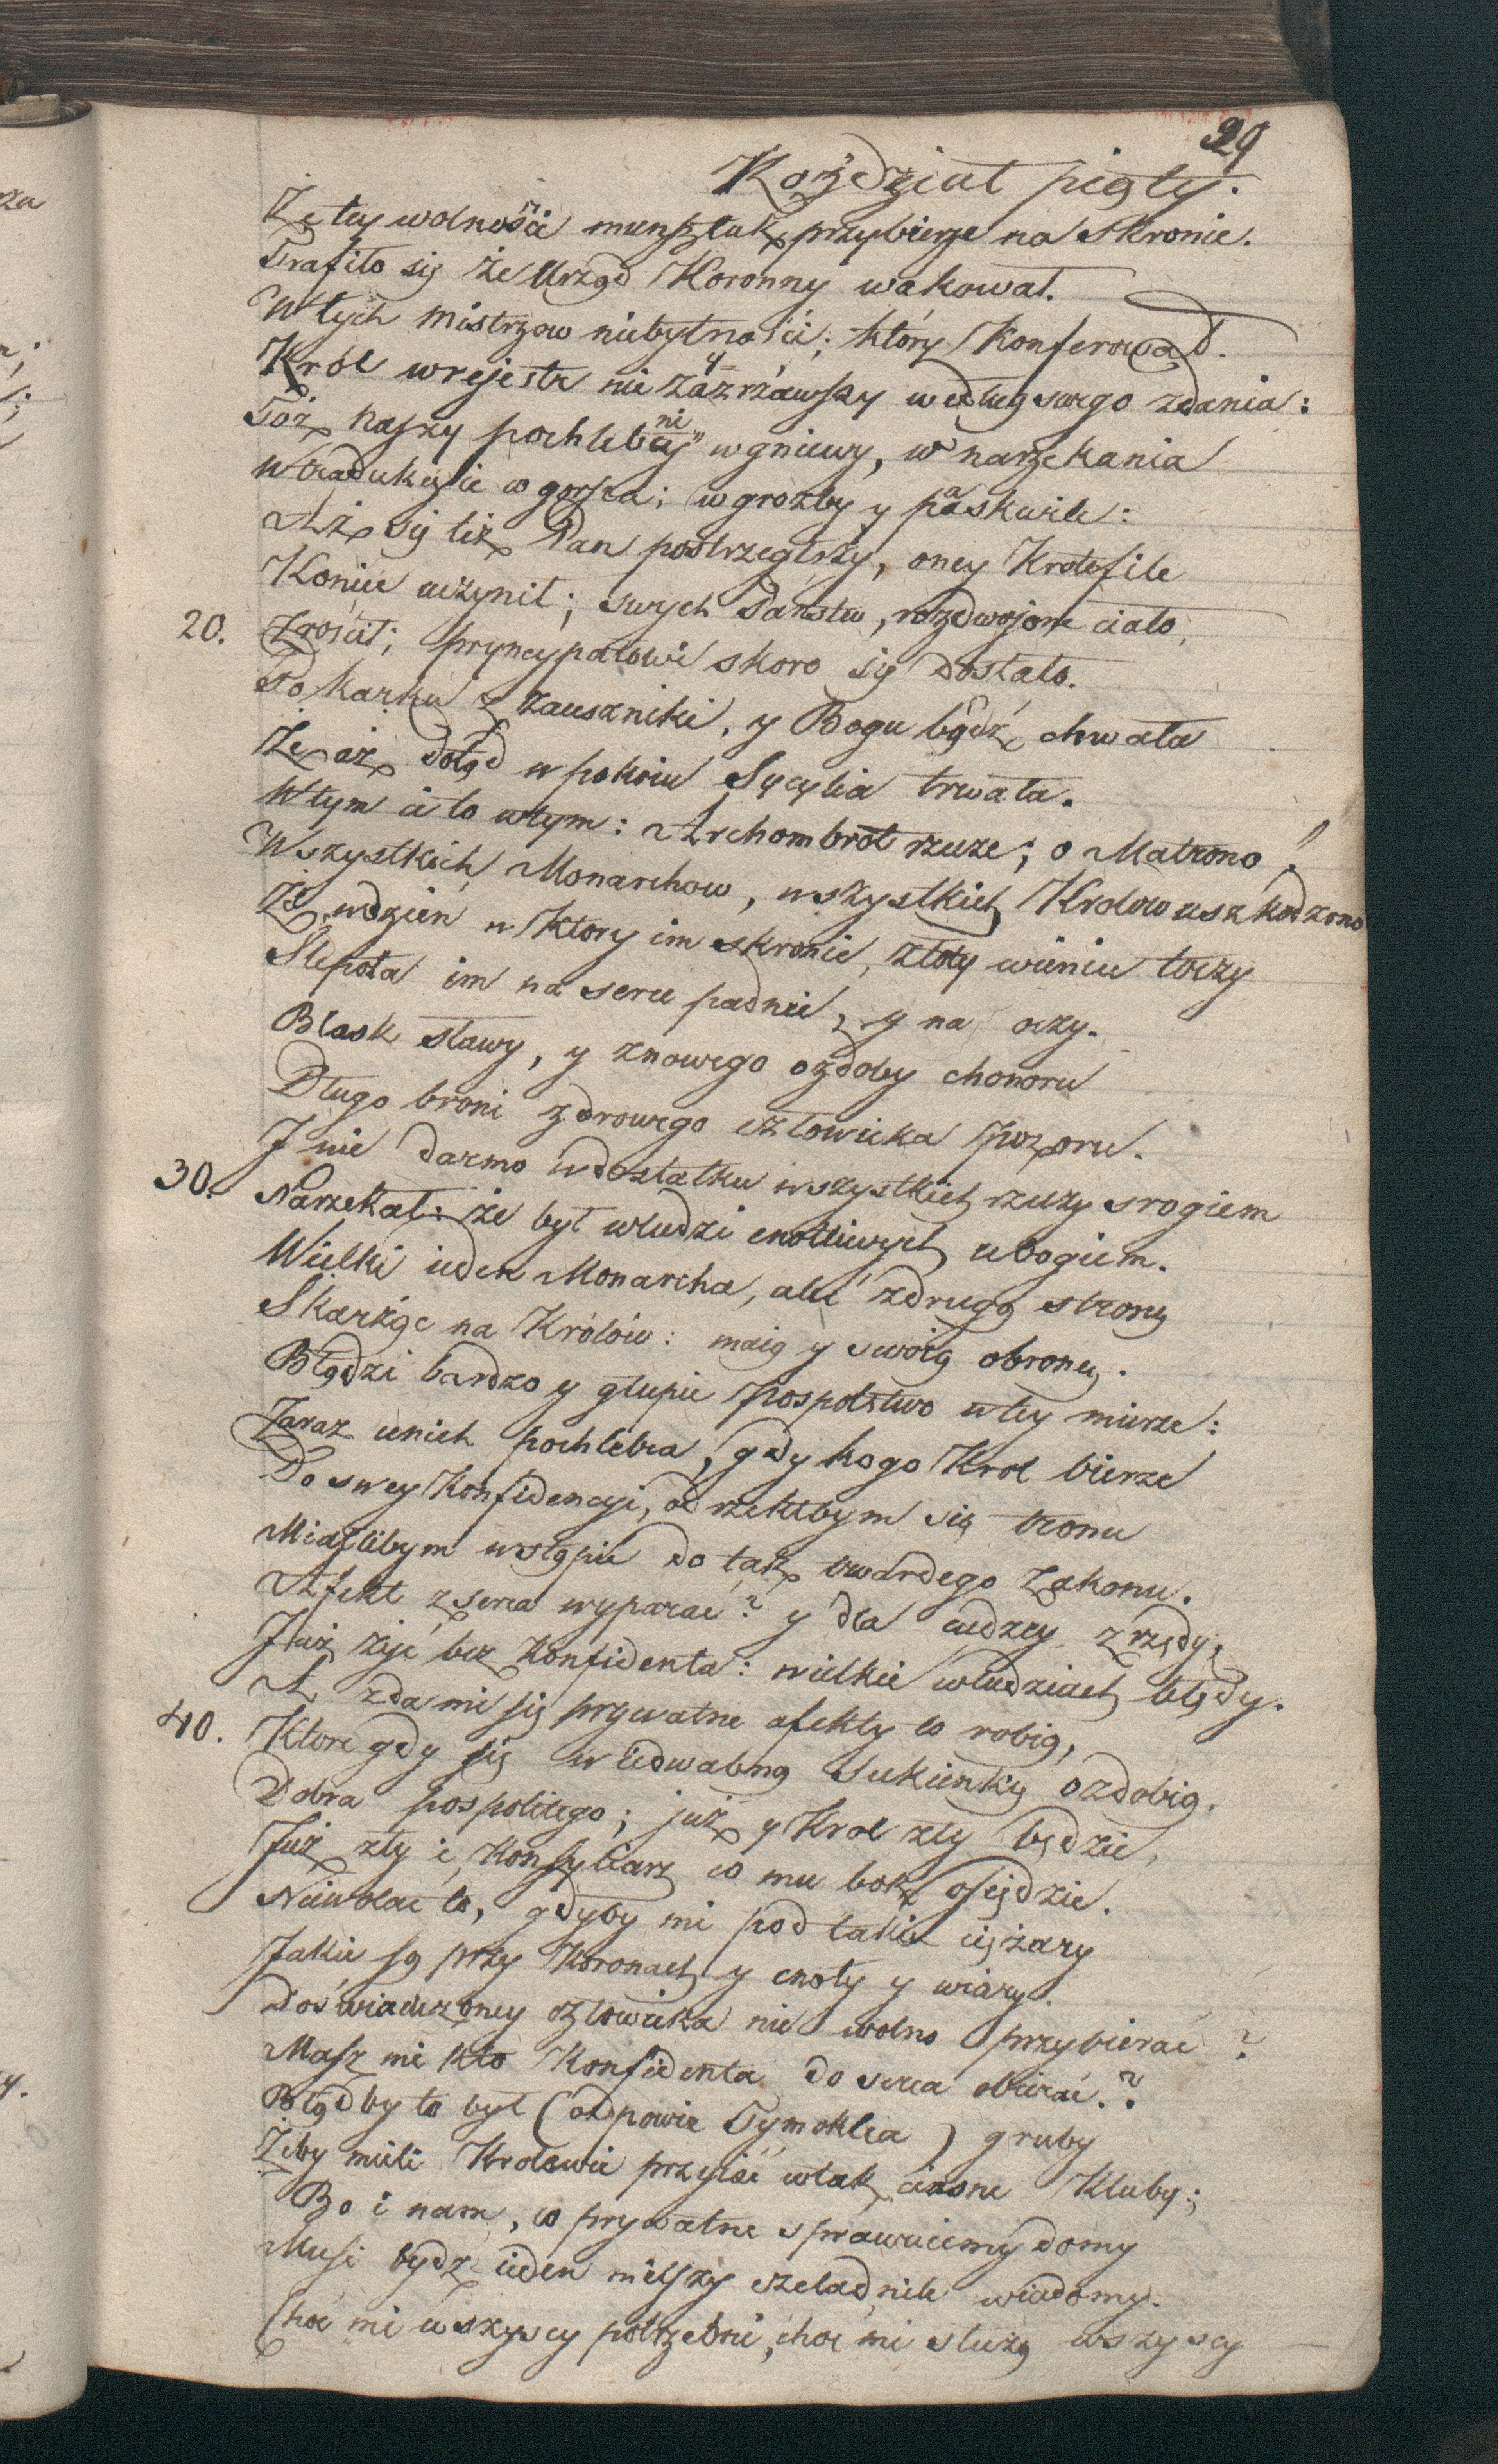 29
Rozdział piąty.
Że tey wolności munsztuk przybierze na skronie.
Trafiło się że Urząd Koronny wakował.
W tych mistrzow niebytności; który Konferował.
Król w rejestr nie zayzrzawszy według swego zdania:
Toż naszy pochlebni w gniewy, w narzekania
W tradukcyie w gorsza; w grozby y paskwile:
Aż się też Pan postrzegłszy, oney Krotofile
Koniec uczynił; swych Państw, rozdwojone ciało,
20. Zrościł; pryncypałowi skoro się dostało.
Po karku z zauszniki, y Bogu bądź chwała
Że aż dotąd w pokoiu Sycylia trwała.
W tym ia to w tym: Archombrot rzecze; o Matrono!
Wszystkich Monarchow, wszystkich Krolow uszkodzono
Że w dzien w ktory im skronie, złoty wieniec toczy
Slepota im na serce padnie, y na oczy.
Blask sławy, y znowego ozdoby chonoru
Długo broni zdrowego człowieka pozoru.
I nie darmo w dostatku wszystkich rzeczy srogiem
30. Narzekał: że był w ludzi cnotliwych ubogiem.
Wielki ieden Monarcha, ale z drugą stronę
Skarżąc na Królów: maią y swoią obronę.
Błądzi bardzo y głupie pospolstwo w tey mierze:
Zaraz u nich pochlebca, gdy kogo Krol bierze
Do swey Konfidencyi, odrzekłbym się tronu
Miałlibym wstąpić do tak twardego Zakonu.
Afekt z serca wyparać? y dla cudzey zrzędy,
Już żyć bez Konfidenta: wielkie w ludziach błędy.
A zda mi się prywatne afekty to robią,
40. Ktore gdy się w iedwabną Sukienkę ozdobią.
Dobra pospolitego; już y Krol zły będzie,
Już zły i Konsyliarz co mu bok osiędzie.
Niewolać to, gdyby mi pod takie ciężary
Jakie są przy Koronach y cnoty y wiary.
Doświadczoney człowieka nie wolno przybierać?
Masz mi kto Konfidenta do serca obierać.?
Błąd by to był (odpowie Tymoklea) gruby
Żeby mieli Krolowie przyiść w tak ciasne Kluby;
Bo i nam, co prywatne sprawuiemy domy
Musi bydz ieden mielszy czeladnik wiadomy.
Choć mi wszyscy potrzebni, choć mi służą wszyscy